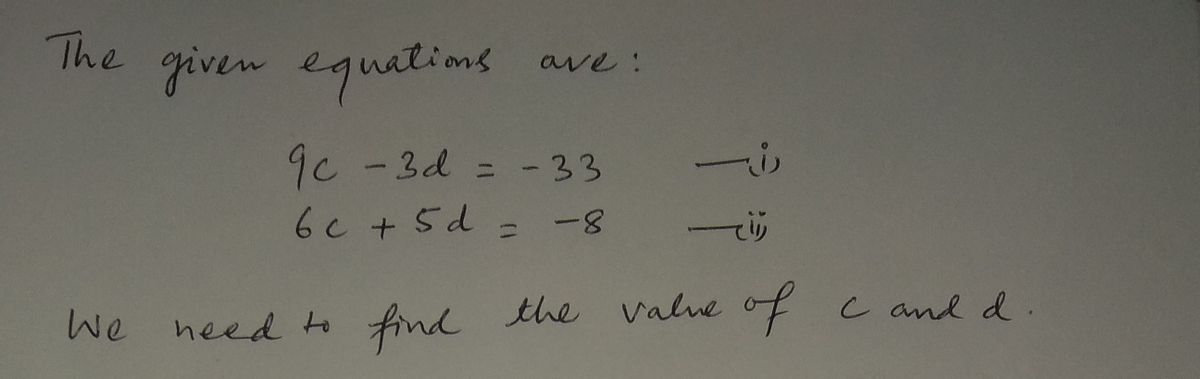 The given equations are:
9c - 3d = -33 —(i)
6c + 5d = -8 —(ii)
We need to find the value of c and d.